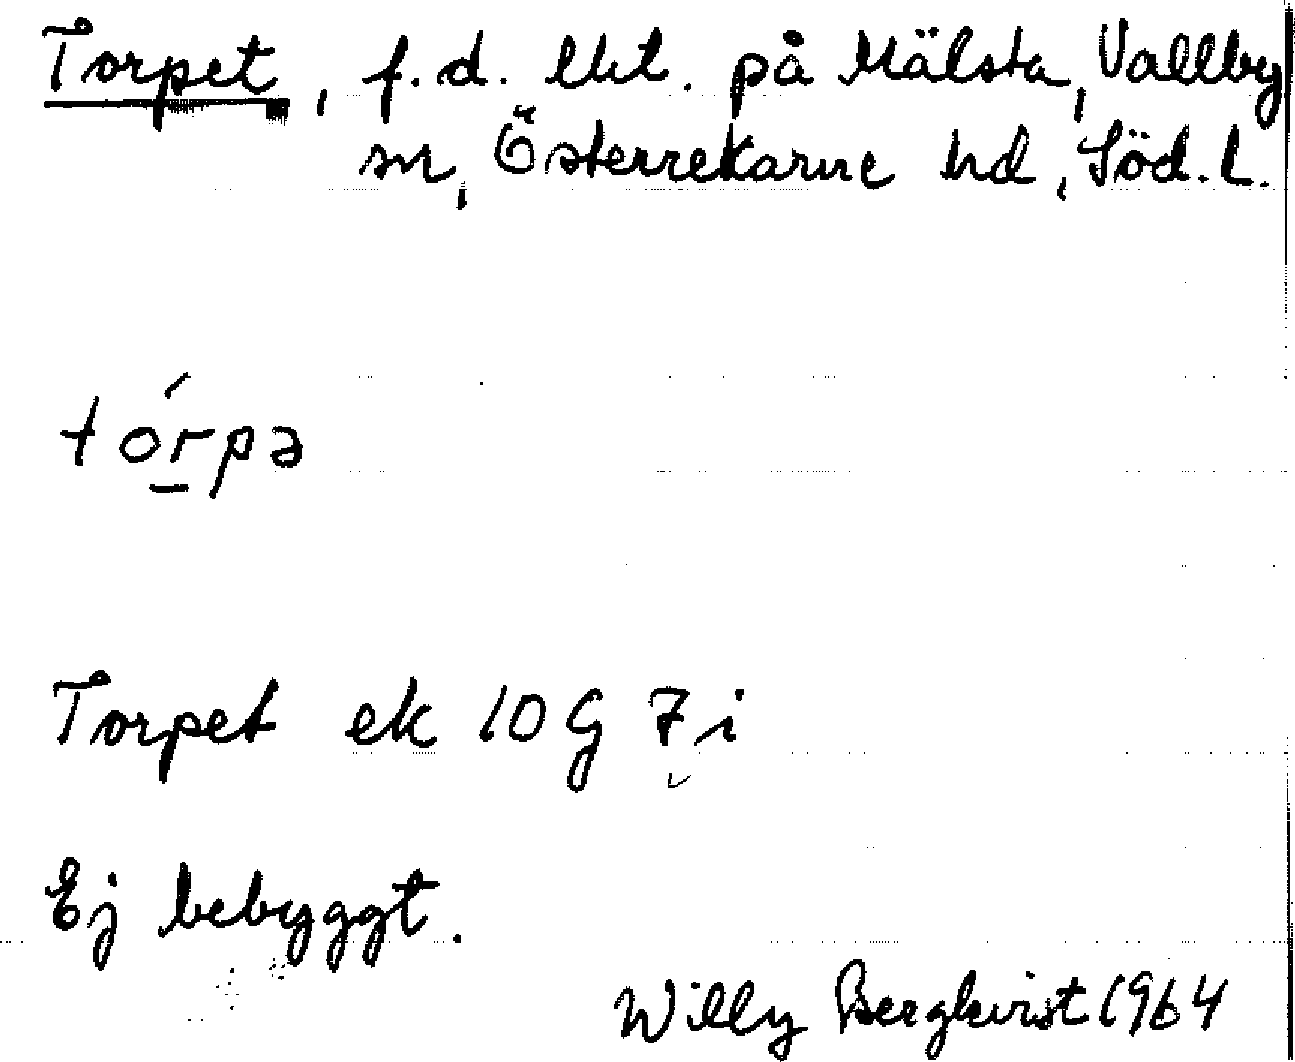 Torpet, f.d. lht. på Mälsta, Vallby
sn, Österrekarne hd, Söd. L.
tórpə
Torpet ek 10 G 7 i
Ej bebyggt.
Willy Bergkvist 1964